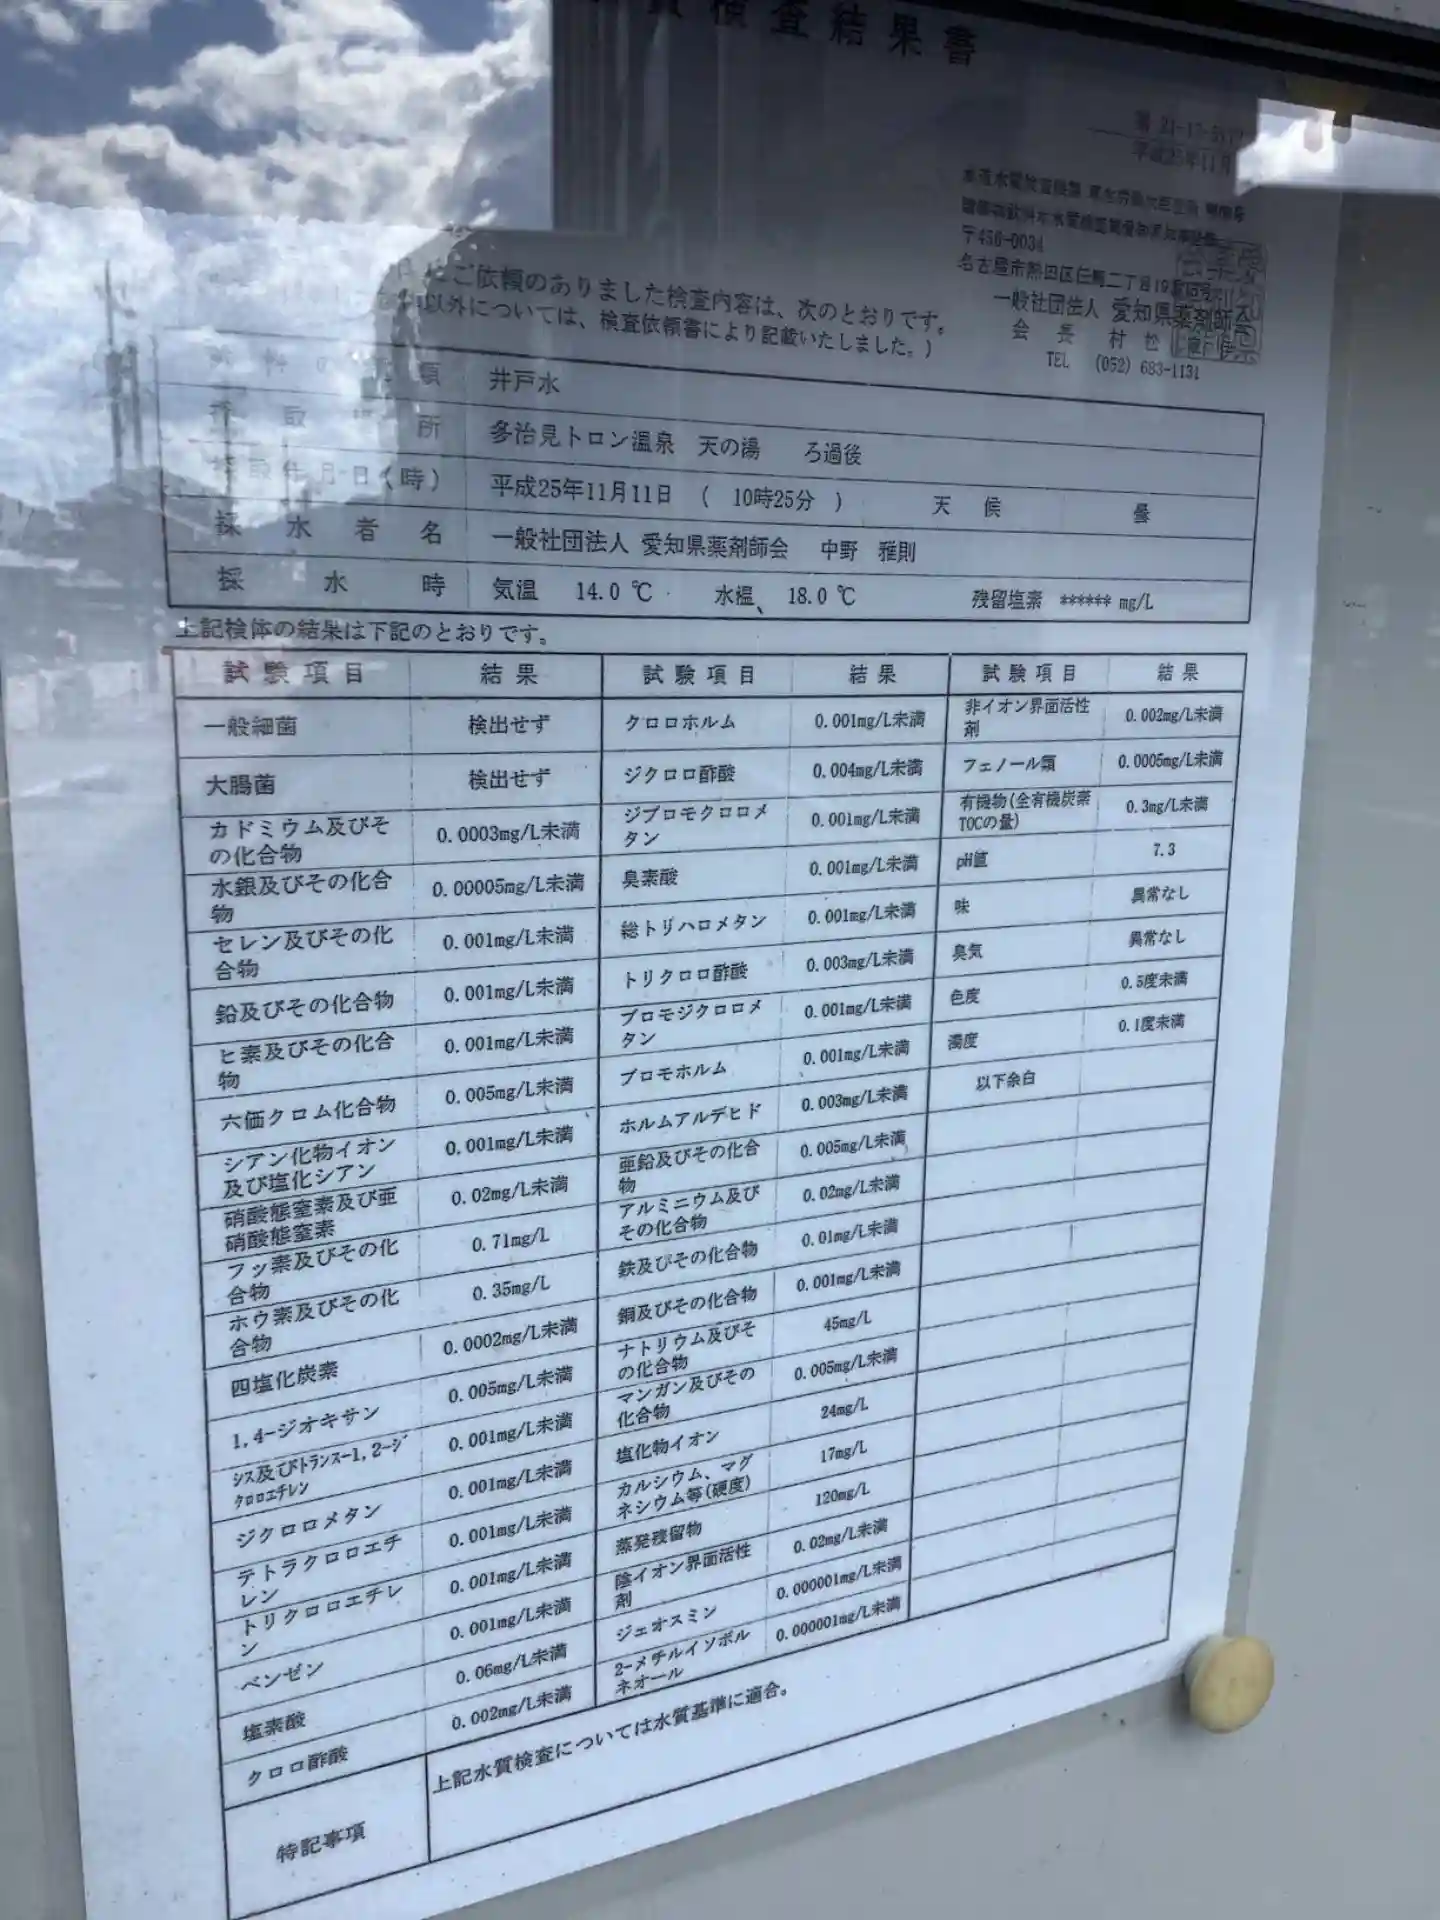 質検査結果書
平成25年11月
〒456-0034
名古屋市熱田区伝馬二丁目19番
一般社団法人 愛知県薬剤師会
会 長 村 松
TEL (052) 683-1131
にご依頼のありました検査内容は、次のとおりです。
以外については、検査依頼書により記載いたしました。)
類 井戸水
採 取 所 多治見トロン温泉 天の湯 ろ過後
採取年月日(時) 平成25年11月11日 ( 10時25分 ) 天 候 曇
採 水 者 名 一般社団法人 愛知県薬剤師会 中野 雅則
採 水 時 気温 14.0 ℃ 水温 18.0 ℃ 残留塩素 ****** mg/L
上記検体の結果は下記のとおりです。
試 験 項 目 結 果 試 験 項 目 結 果 試 験 項 目 結 果
一般細菌 検出せず
大腸菌 検出せず
カドミウム及びそ
の化合物 0.0003mg/L未満
水銀及びその化合
物 0.00005mg/L未満
セレン及びその化
合物 0.001mg/L未満
鉛及びその化合物 0.001mg/L未満
ヒ素及びその化合
物 0.001mg/L未満
六価クロム化合物 0.005mg/L未満
シアン化物イオン
及び塩化シアン 0.001mg/L未満
硝酸態窒素及び亜
硝酸態窒素 0.02mg/L未満
フッ素及びその化
合物 0.71mg/L
ホウ素及びその化
合物 0.35mg/L
四塩化炭素 0.0002mg/L未満
1,4-ジオキサン 0.005mg/L未満
シス及びトランス-1,2-ジ
クロロエチレン 0.001mg/L未満
ジクロロメタン 0.001mg/L未満
テトラクロロエチ
レン 0.001mg/L未満
トリクロロエチレ
ン 0.001mg/L未満
ベンゼン 0.001mg/L未満
塩素酸 0.06mg/L未満
クロロ酢酸 0.002mg/L未満
クロロホルム 0.001mg/L未満
ジクロロ酢酸 0.004mg/L未満
ジブロモクロロメ
タン 0.001mg/L未満
臭素酸 0.001mg/L未満
総トリハロメタン 0.001mg/L未満
トリクロロ酢酸 0.003mg/L未満
ブロモジクロロメ
タン 0.001mg/L未満
ブロモホルム 0.001mg/L未満
ホルムアルデヒド 0.003mg/L未満
亜鉛及びその化合
物 0.005mg/L未満
アルミニウム及び
その化合物 0.02mg/L未満
鉄及びその化合物 0.01mg/L未満
銅及びその化合物 0.001mg/L未満
ナトリウム及びそ
の化合物 45mg/L
マンガン及びその
化合物 0.005mg/L未満
塩化物イオン 24mg/L
カルシウム、マグ
ネシウム等(硬度) 17mg/L
蒸発残留物 120mg/L
陰イオン界面活性
剤 0.02mg/L未満
ジェオスミン 0.000001mg/L未満
2-メチルイソボル
ネオール 0.000001mg/L未満
非イオン界面活性
剤 0.002mg/L未満
フェノール類 0.0005mg/L未満
有機物(全有機炭素
TOCの量) 0.3mg/L未満
pH値 7.3
味 異常なし
臭気 異常なし
色度 0.5度未満
濁度 0.1度未満
以下余白
特記事項 上記水質検査については水質基準に適合。